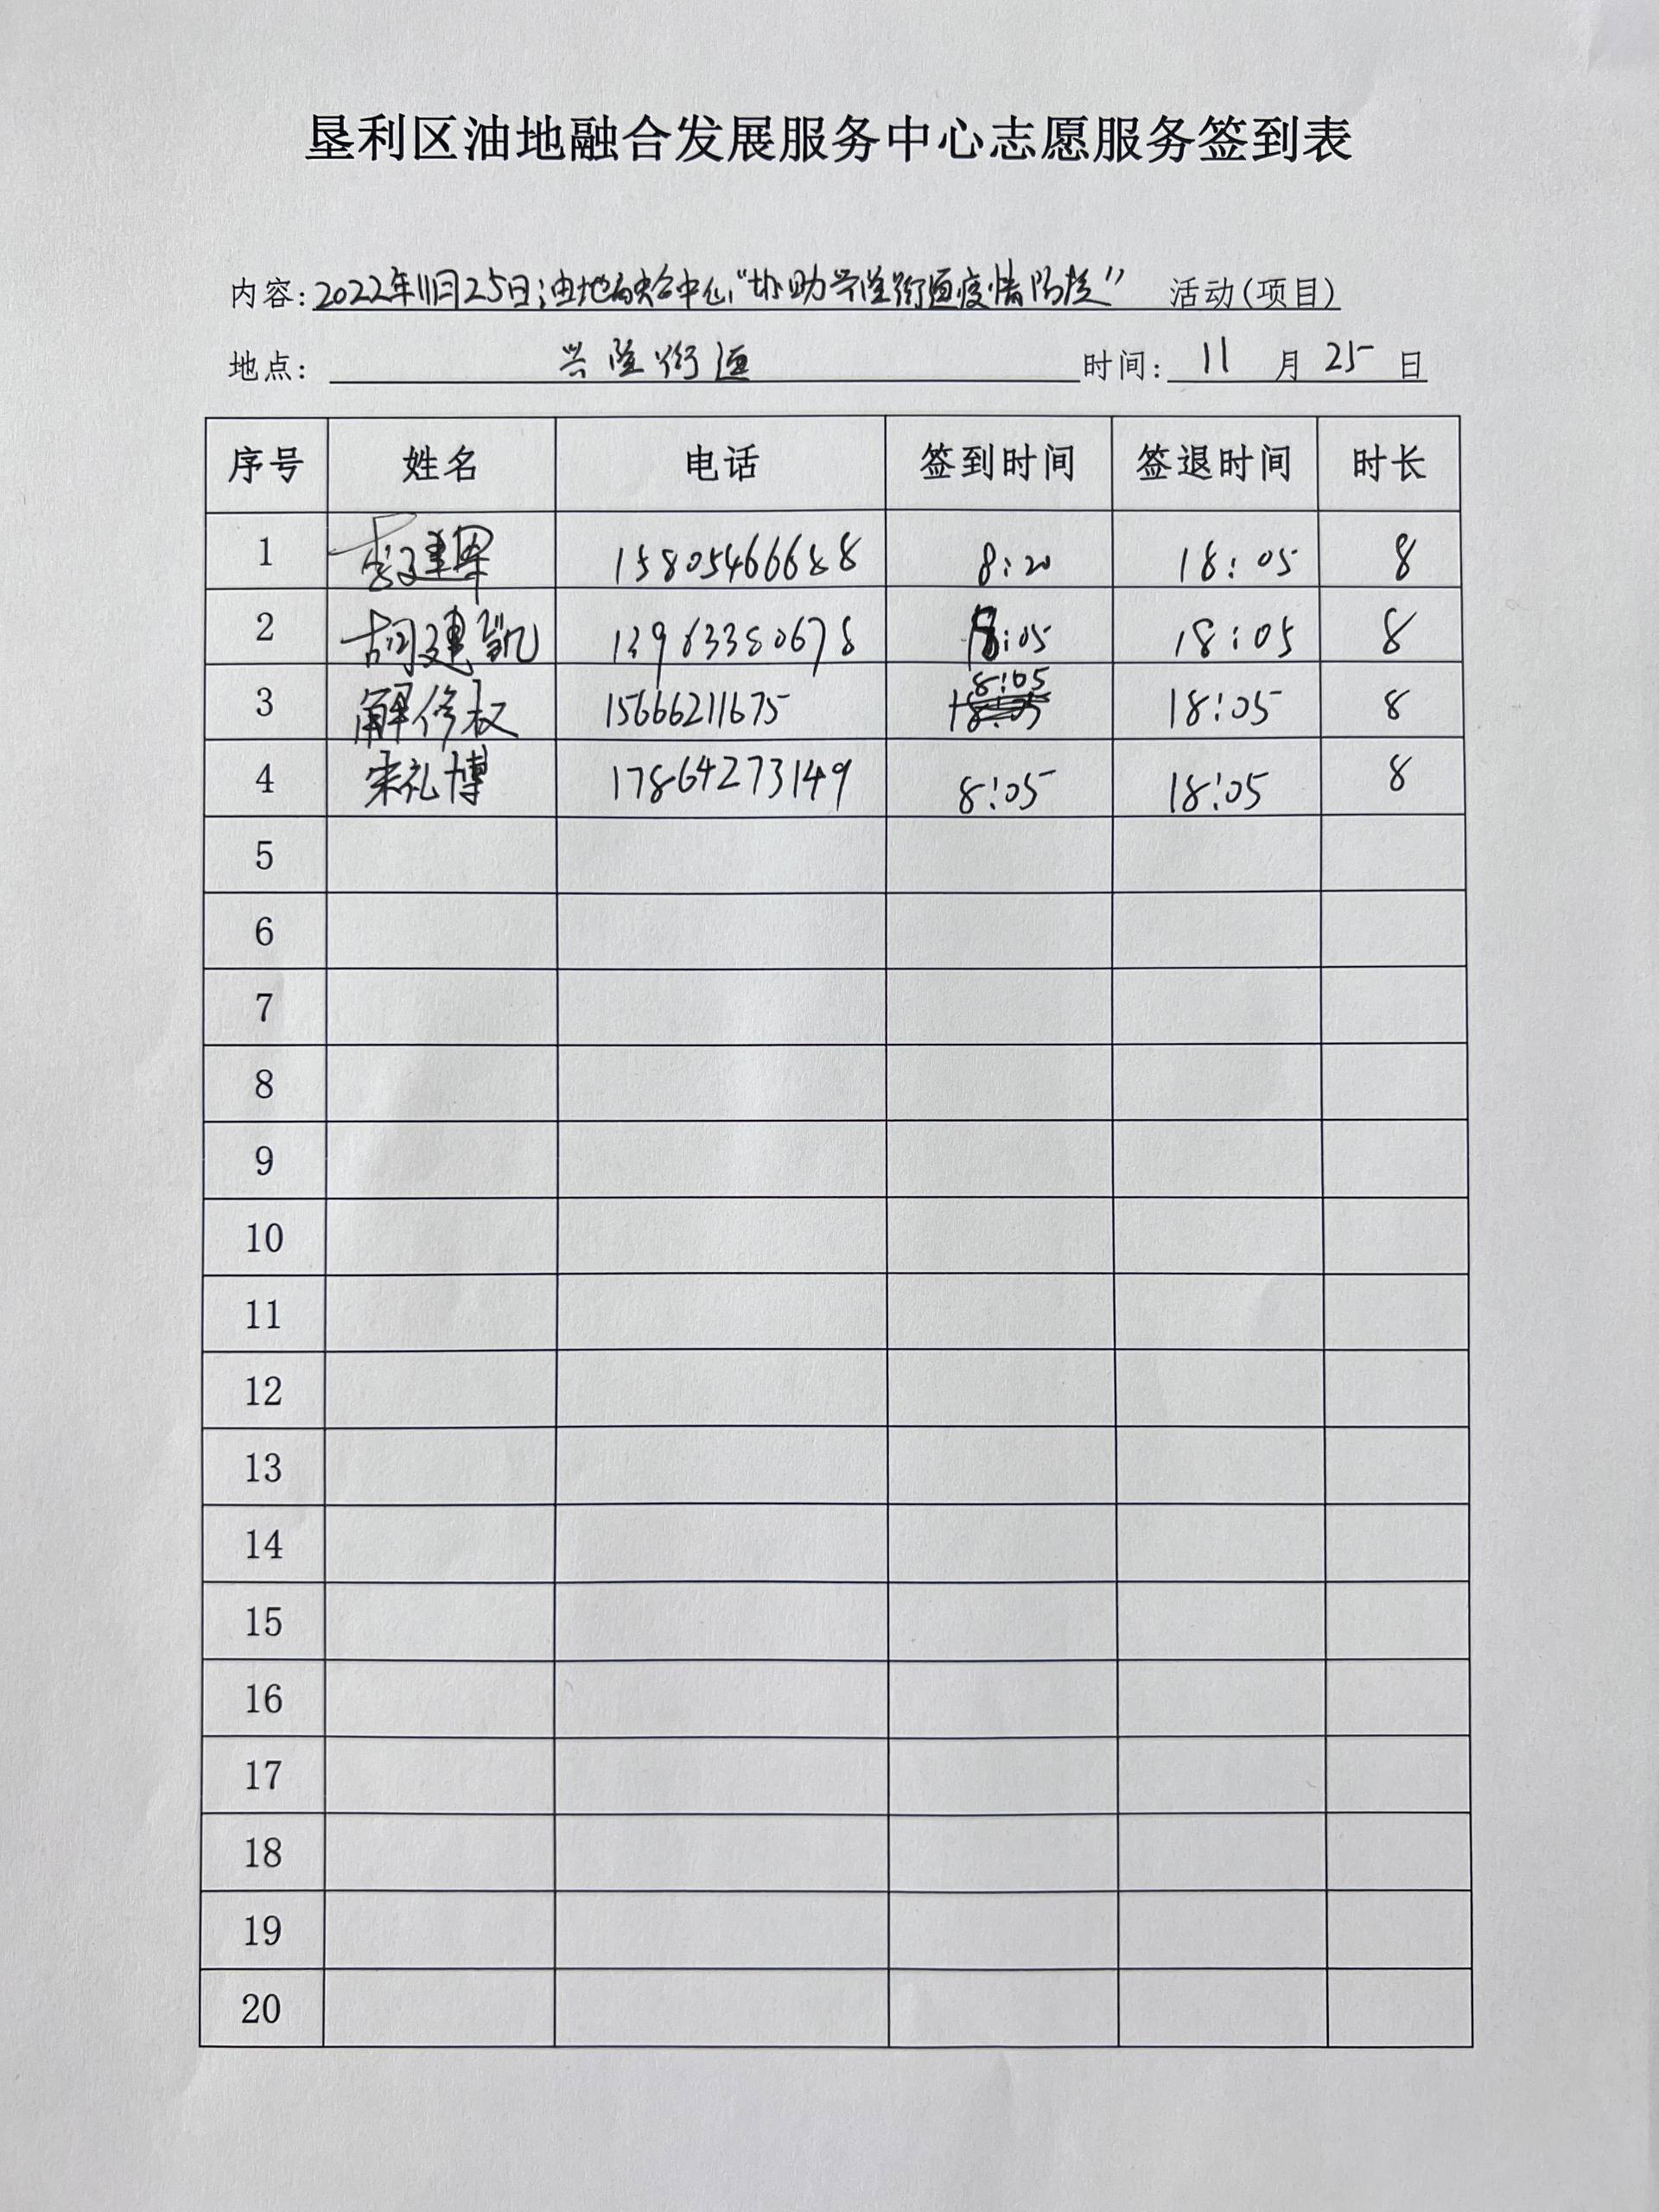 垦利区油地融合发展服务中心志愿服务签到表
内容:2022年11月25日油地融合中心“协助兴隆街道疫情防控” 活动(项目)
地点: 兴隆街道 时间: 11 月 25 日
序号 姓名 电话 签到时间 签退时间 时长
1 李建军 15805466688 8:20 18:05 8
2 胡建凯 13963380678 8:05 18:05 8
3 解修权 15666211675 8:05 18:05 8
4 宋礼博 17864273149 8:05 18:05 8
5
6
7
8
9
10
11
12
13
14
15
16
17
18
19
20